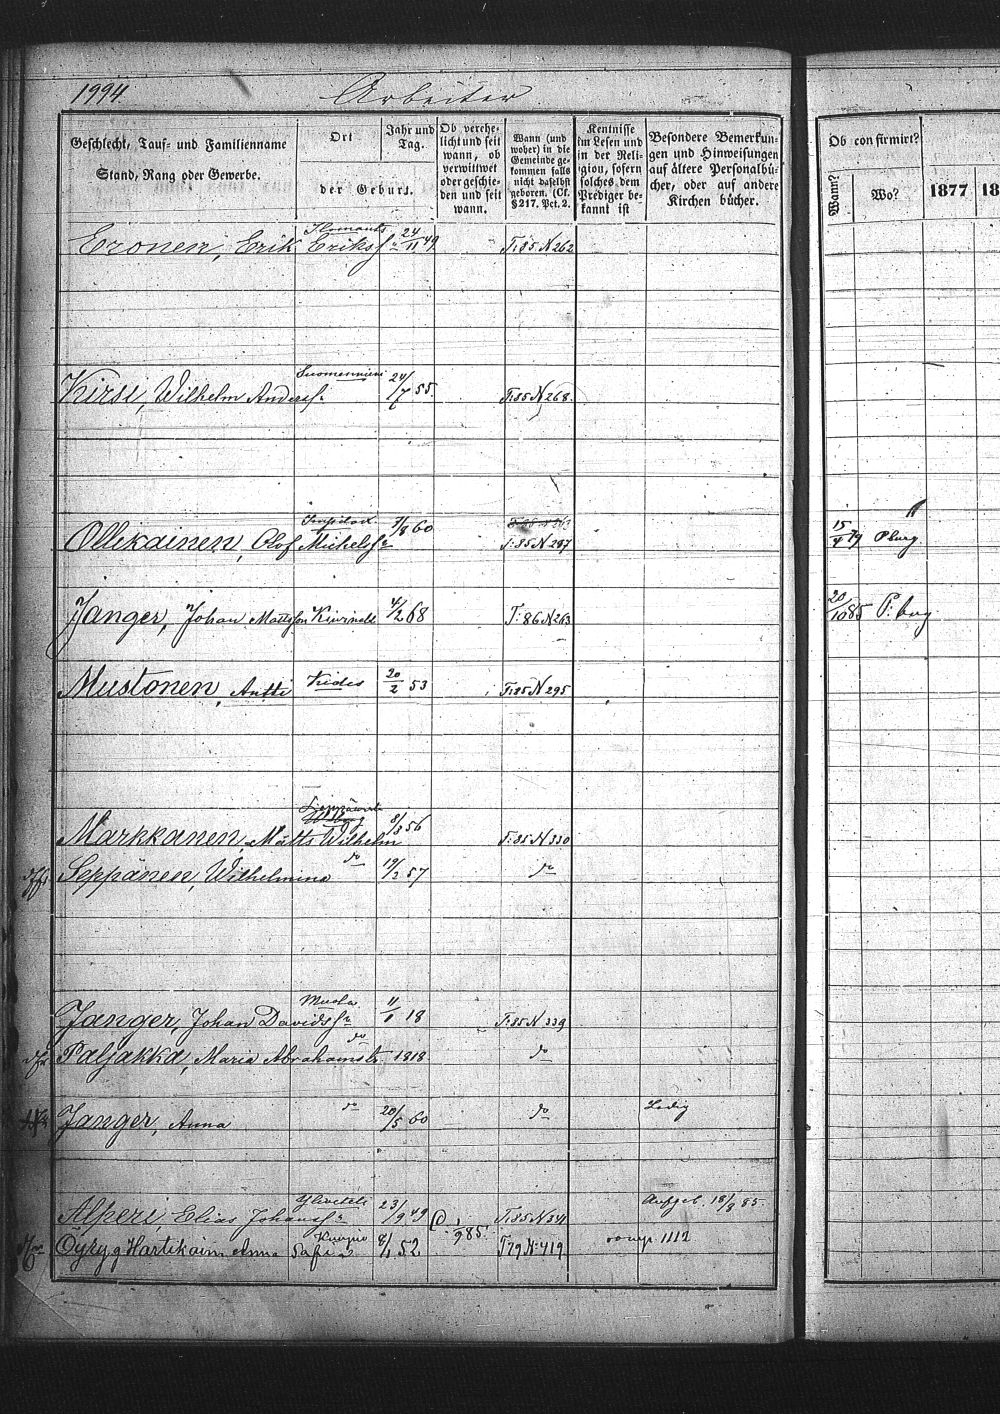 1994. Arbeiter
Geschlecht, Tauf- und Familienname
Stand, Rang oder Gewerbe.
Ort
der Geburt.
Jahr und
Tag.
Ob verehe-
licht und seit
wann, ob
verwittwet
oder geschie-
den und seit
wann.
Wann (und
woher) in die
Gemeinde ge-
kommen falls
nicht daselbst
geboren. (Cf.
§ 217. Pct. 2.
Kentnisse
im Lesen und
in der Reli-
gion, sofern
solches dem
Prediger be-
kannt ist
Besondere Bemerkun-
gen und Hinweisungen
auf ältere Personalbü-
cher, oder auf andere
Kirchen bücher.
Ob confirmirt?
Wann?
Wo?
1877
18
Ilomants
Eronen, Erik Erikss. 24/11 49 T: 85 N 262
Suomenniemi
Kirsi, Wilhelm Anderss. 24/7 55. T: 85 N 268
Impilax
Ollikainen, Olof Michelss. 7/8 60 T: 85 N 297 15/4 79 Pburg.
Janger, Johan Mattsson Kivineb. 4/2 68 T: 86 N 263 20/10 85 P: burg
Mustonen, Antti Kides 20/2 53 T: 85 N 295
Leppävirta
Markkanen, Matts Wilhelm 8/3 56 T: 85 N 330
Seppänen, Wilhelmina do 19/2 57 do
Muola
Janger, Johan Davidss. 11/8 18 T: 85 N 339
Paljakka, Maria Abrahamstr. do 1818 do
Janger, Anna do 20/5 60 do Ledig
Alperi, Elias Johanss. 23/9 49 1/9 85. T: 85 N 341 Aufgeb. 18/8 85.
Kuopio
Hartikain Anna 8/1 52 T 79 N: 419 1112